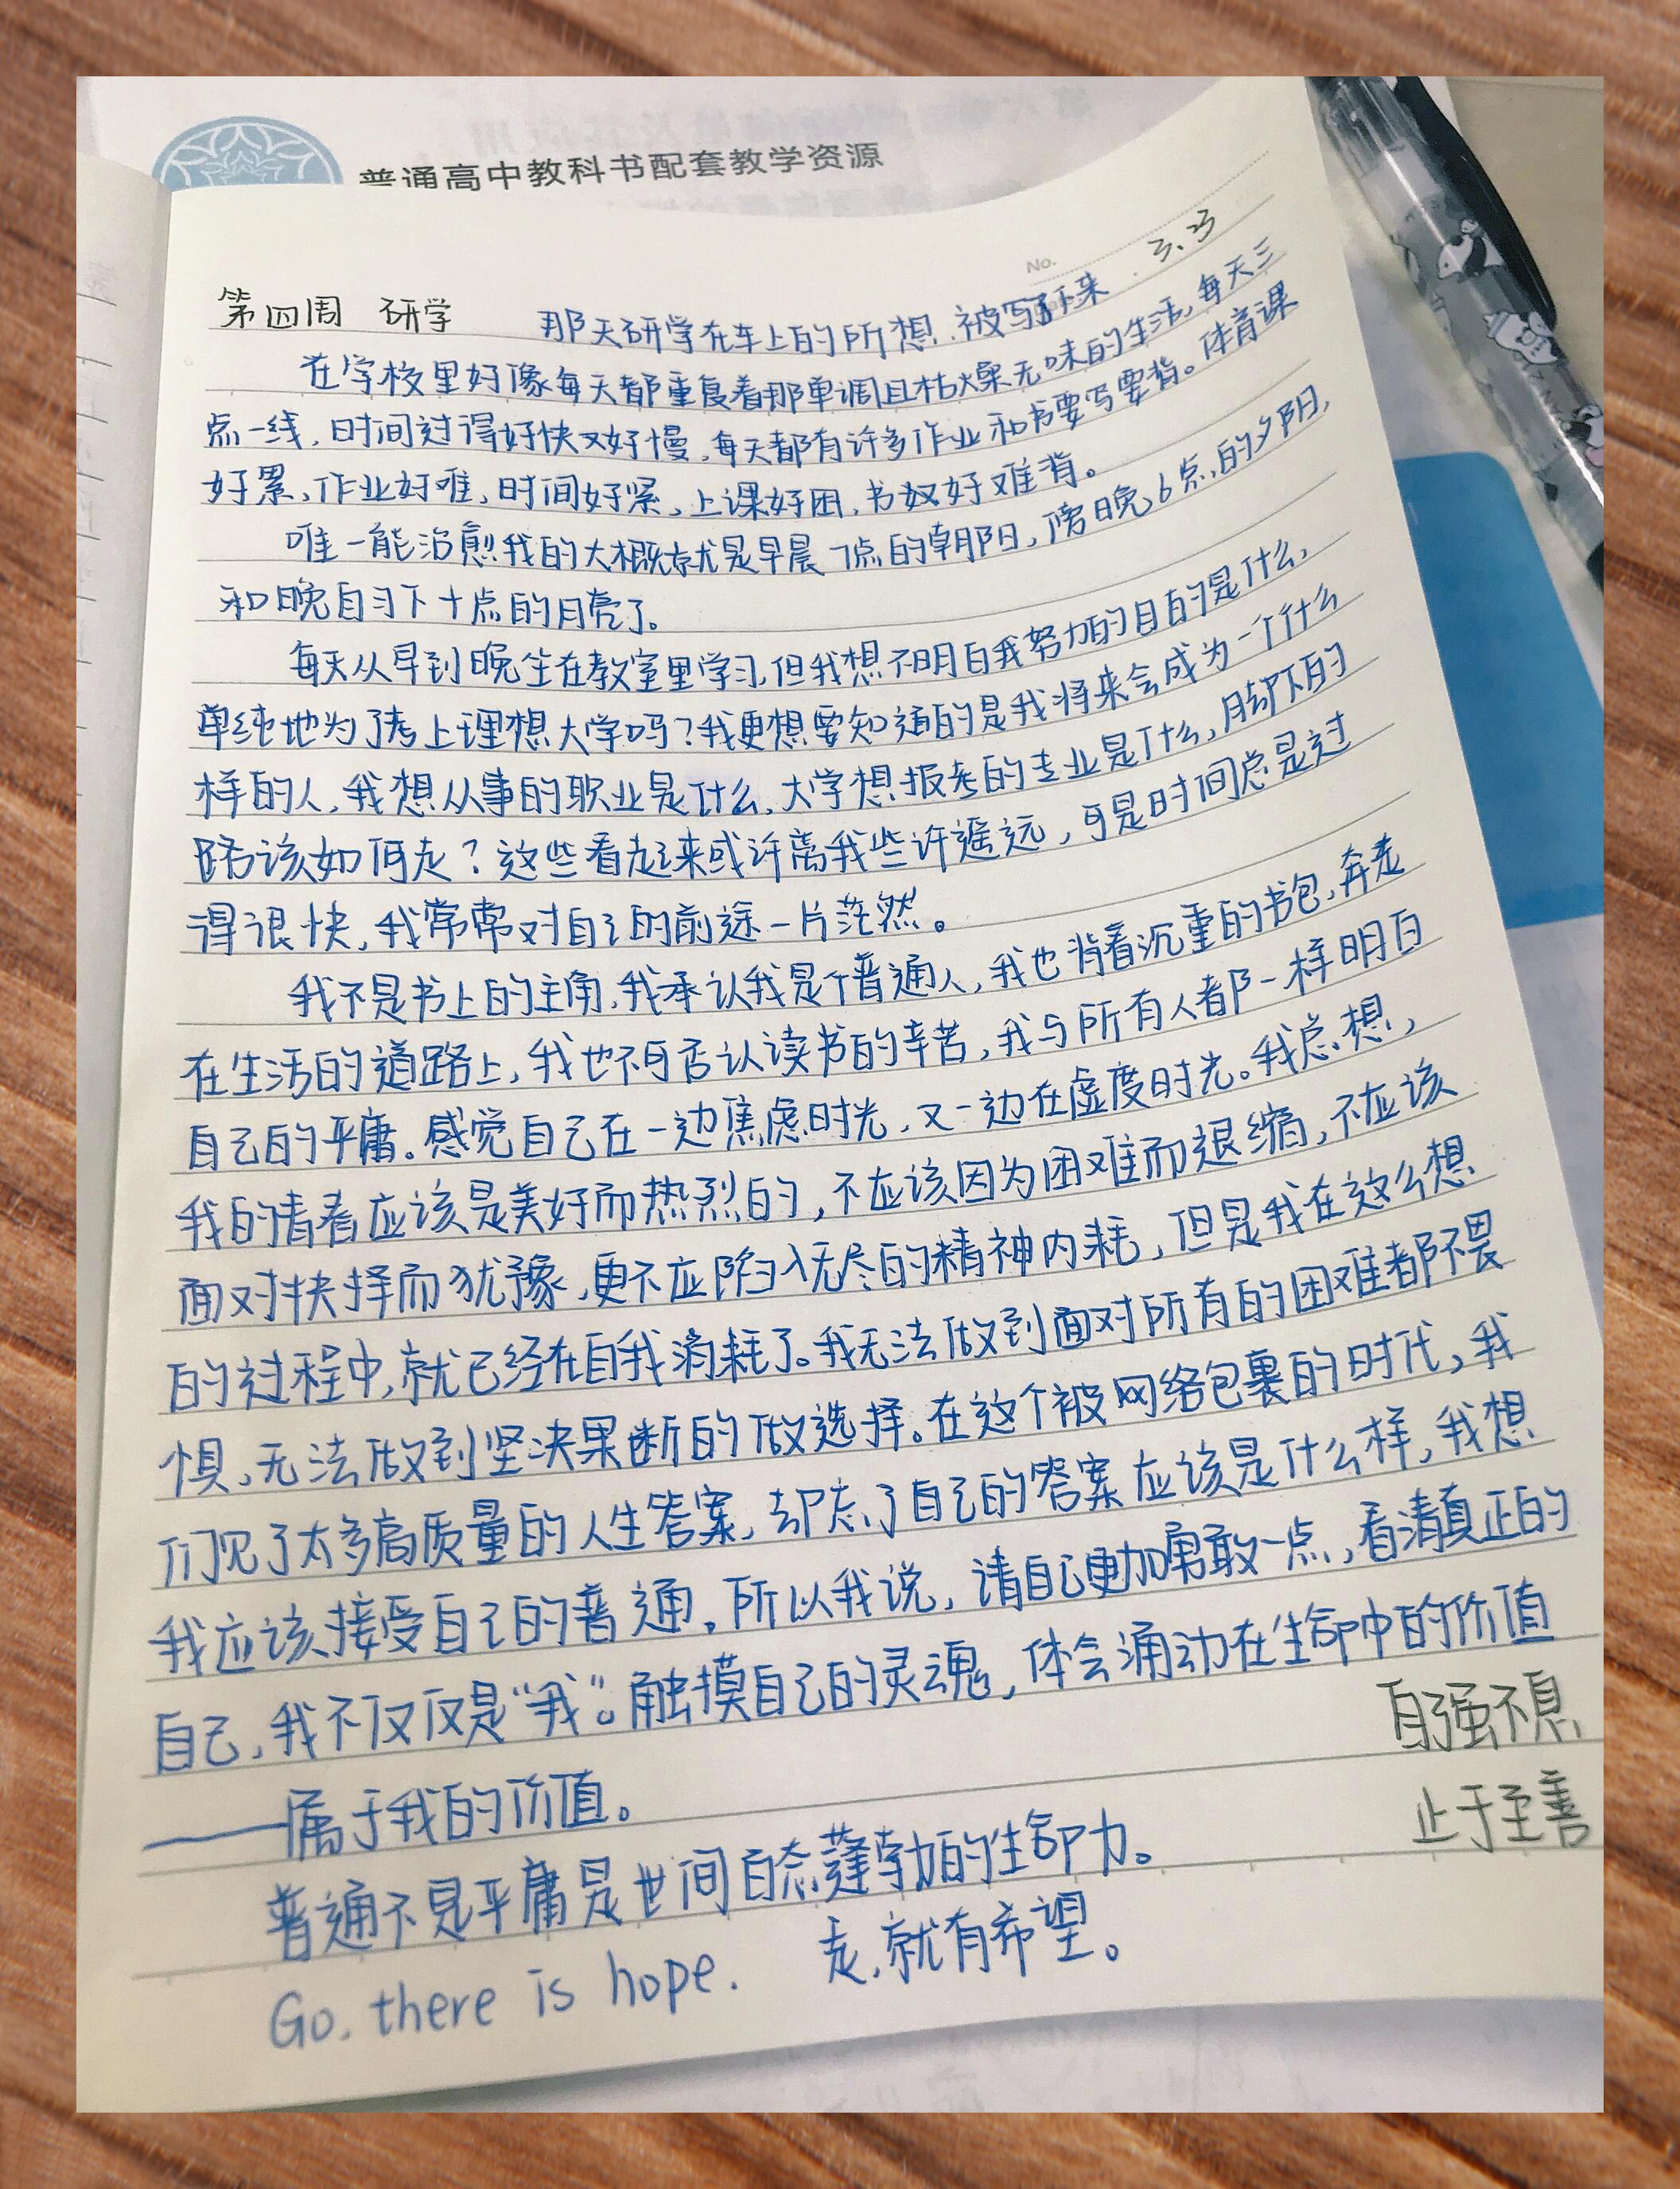 普通高中教科书配套教学资源
No.
3.23
第四周 研学 那天研学在车上的所想,被写了下来
在学校里好像每天都重复着那单调且枯燥无味的生活,每天三
点一线,时间过得好快又好慢,每天都有许多作业和书要写要背。体育课
好累,作业好难,时间好紧,上课好困,书好难背。
唯一能治愈我的大概就是早晨7点的朝阳,傍晚6点的夕阳,
和晚自习下十点的月亮了。
每天从早到晚坐在教室里学习,但我想不明白我努力的目的是什么,
单纯地为了考上理想大学吗?我更想要知道的是我将来会成为一个什么
样的人,我想从事的职业是什么,大学想报考的专业是什么,脚下的
路该如何走?这些看起来或许离我些许遥远,可是时间总是过
得很快,我常常对自己的前途一片茫然。
我不是书上的主角,我承认我是个普通人,我也背着沉重的书包,奔走
在生活的道路上,我也不可否认读书的辛苦,我与所有人都一样明白
自己的平庸。感觉自己在一边焦虑时光,又一边在虚度时光。我总想,
我的青春应该是美好而热烈的,不应该因为困难而退缩,不应该
面对抉择而犹豫,更不应陷入无尽的精神内耗,但是我在这么想
的过程中,就已经在自我消耗了。我无法做到面对所有的困难都不畏
惧,无法做到坚决果断的做选择。在这个被网络包裹的时代,我
们见了太多高质量的人生答案,却忘了自己的答案应该是什么样,我想
我应该接受自己的普通。所以我说,请自己更加勇敢一点,看清真正的
自己,我不仅仅是“我”。触摸自己的灵魂,体会涌动在生命中的价值
——属于我的价值。
自强不息
止于至善
普通不是平庸是世间自然蓬勃的生命力。
Go. there is hope. 走,就有希望。